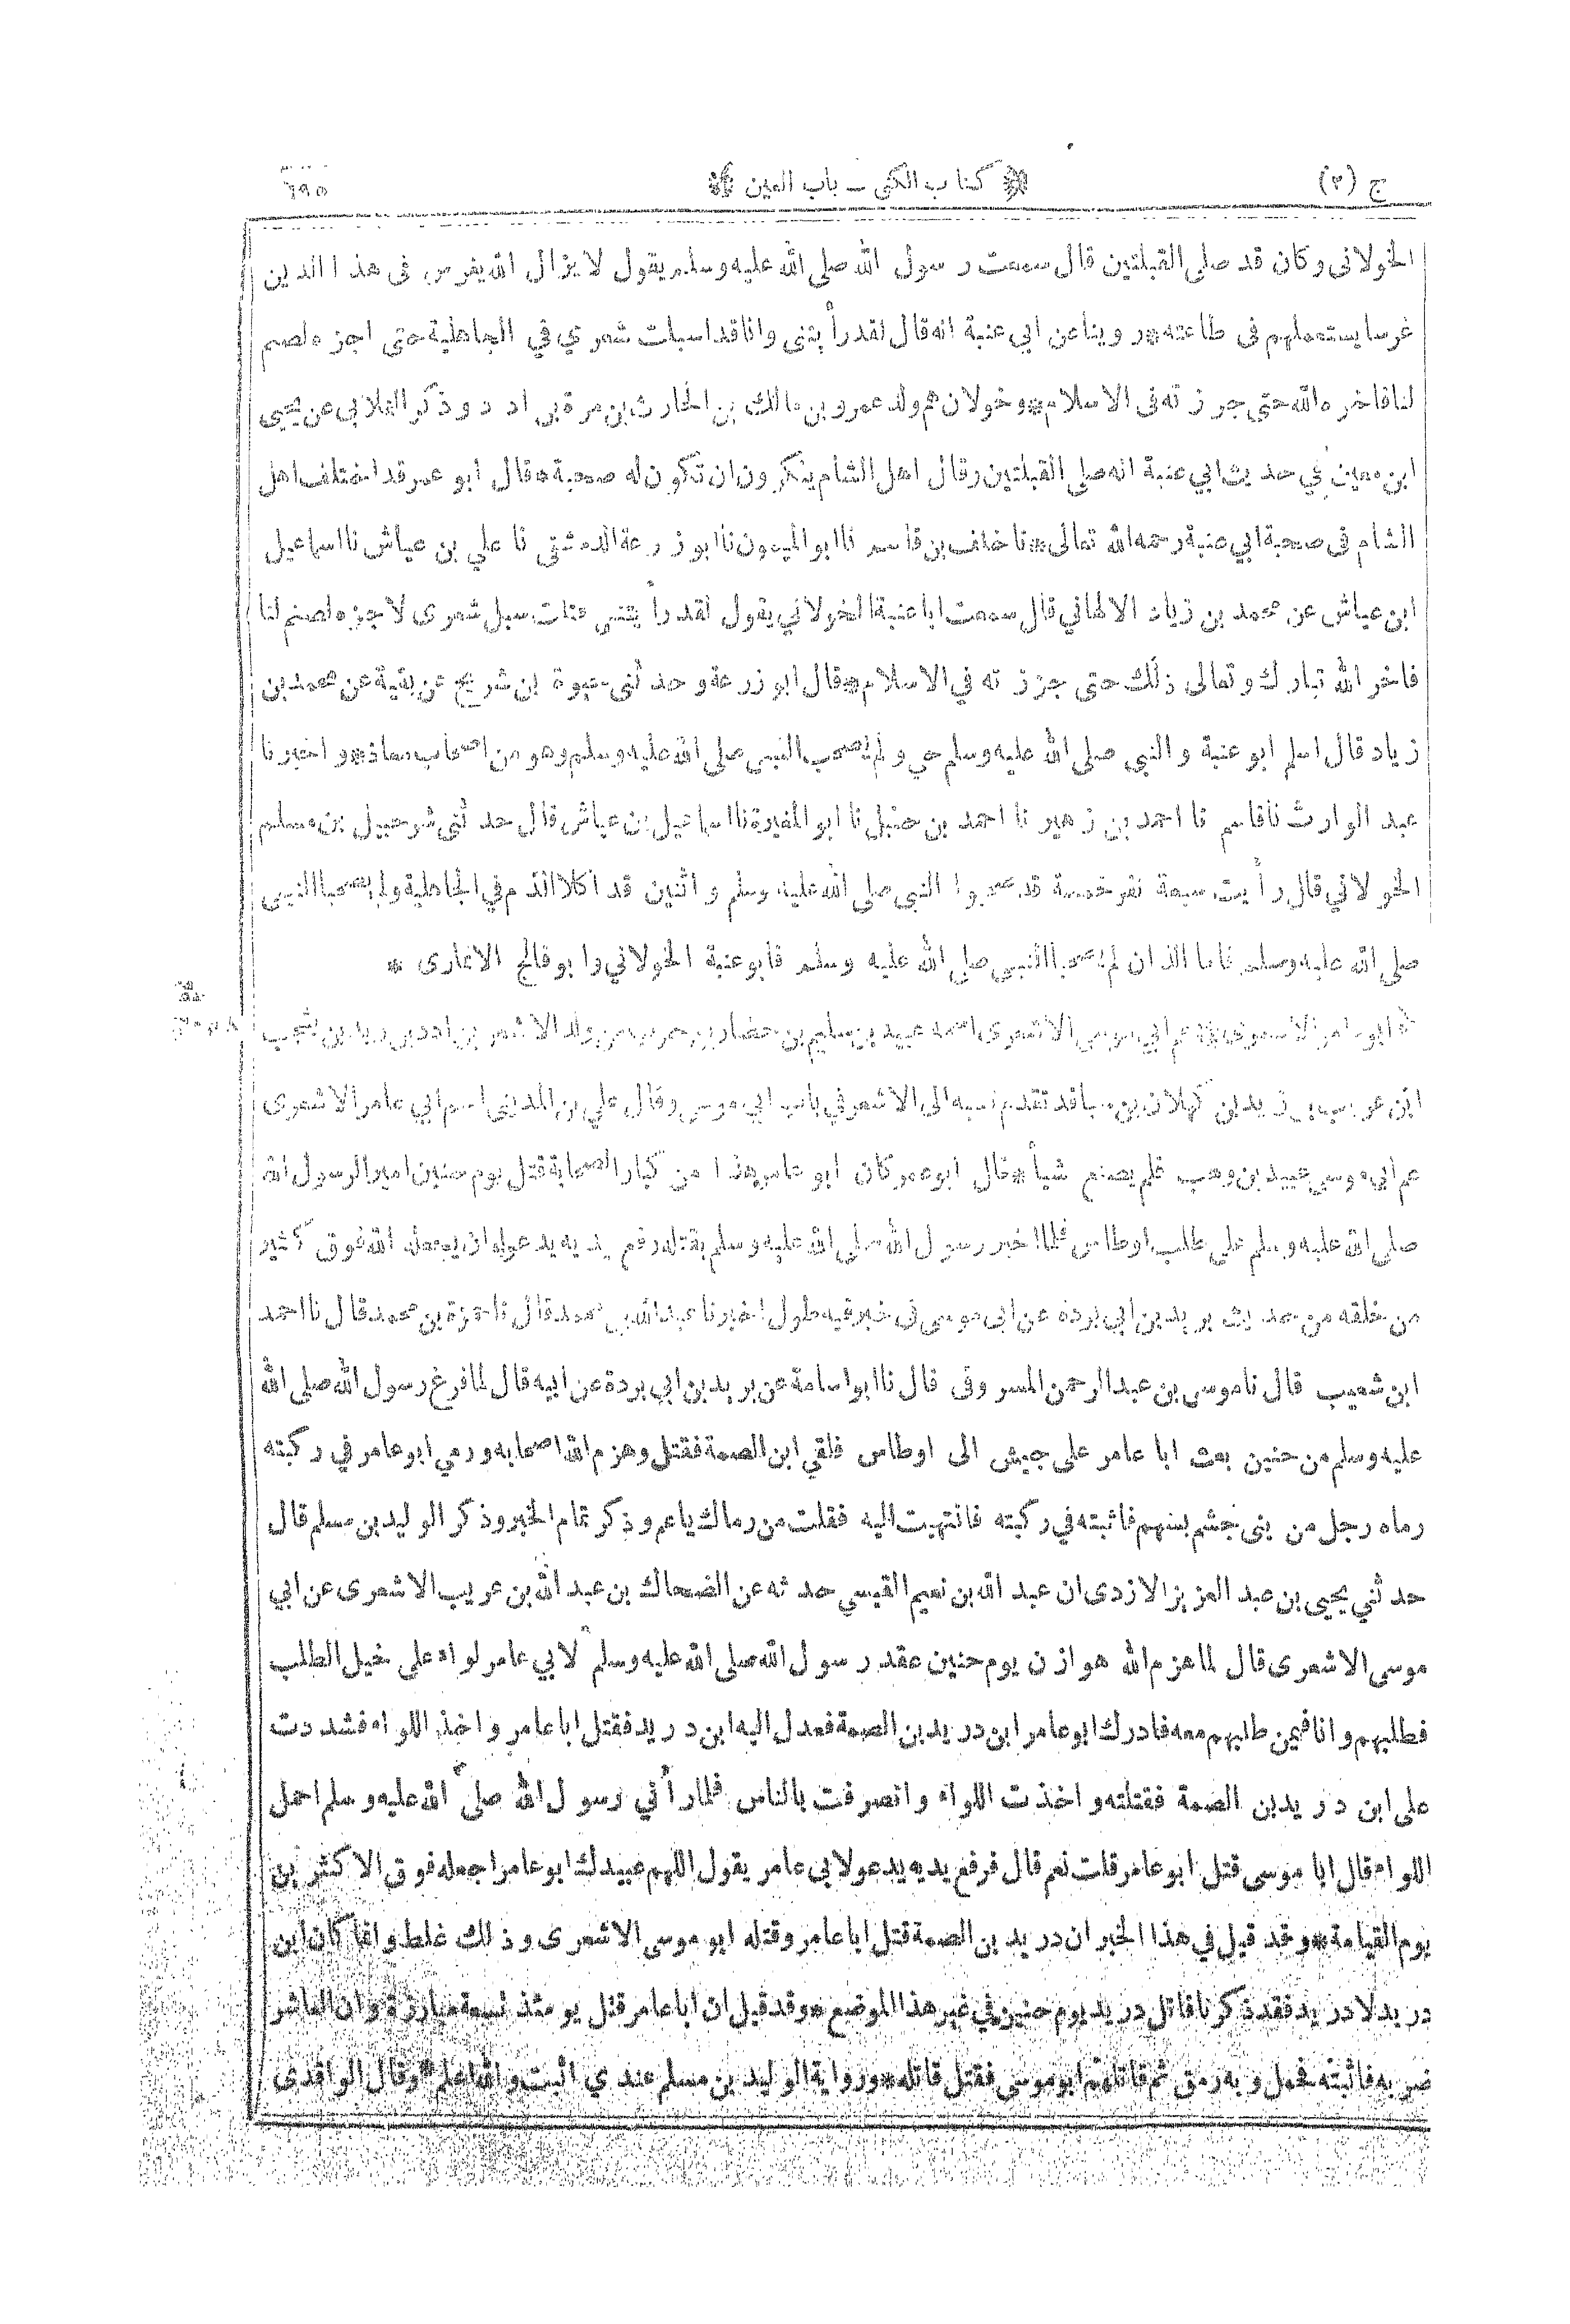 ج (٢) ﴿ كتاب الكنى – باب العين ﴾ ٦٩٥
الخولانى وكان قد صلى القبلتين قال سمعت رسول الله صلى الله عليه وسلم يقول لا يزال الله يغرس فى هذا الدين
غرسا يستعملهم فى طاعته * روينا عن ابى عنبة انه قال لقد رأيتنى وانا قد اسبلت شعري في الجاهلية حتى اجزه لصم
لنا فاخره الله حتى جززته فى الاسلام * وخولان هم ولد عمرو بن مالك بن الحارث بن مرة بن ادد وذكر الغلابى عن يحيى
ابن معين في حديث ابي عنبة انه صلى القبلتين وقال اهل الشام ينكرون ان تكون له صحبة * قال ابو عمر قد اختلف اهل
الشام فى صحبة ابي عنبة رحمه الله تعالى * نا خلف بن قاسم نا ابو الميمون نا ابو زرعة الدمشقى نا علي بن عياش نا اسماعيل
ابن عياش عن محمد بن زياد الالهاني قال سمعت ابا عنبة الخولاني يقول لقد رأيتنى سبل شعرى لاجزه لصنم لنا
فاخر الله تبارك وتعالى ذلك حتى جززته في الاسلام * قال ابو زرعة وحدثنى حيوة بن شريح عن بقية عن محمد بن
زياد قال اسلم ابو عنبة والنبى صلى الله عليه وسلم حي ولم يصحب النبى صلى الله عليه وسلم وهو من اصحاب معاذ * واخبرنا
عبد الوارث نا قاسم نا احمد بن زهير نا احمد بن حنبل نا ابو المغيرة نا اسماعيل بن عياش قال حدثنى شرحبيل بن مسلم
الخولاني قال رأيت سبعة نفر خمسة قد صحبوا النبى صلى الله عليه وسلم واثنين قد اكلا الدم في الجاهلية ولم يصحبا النبى
صلى الله عليه وسلم فاما اللذان لم يصحبا النبى صلى الله عليه وسلم فابو عنبة الخولاني وابو فالج الانمارى *
* ابو عامر الاشعرى * عم ابي موسى الاشعرى اسمه عبيد بن سليم بن حضار بن حرب من ولد الاشعر بن ادد بن زيد بن يشجب
ابن عريب بن زيد بن كهلان بن سبا قد تقدم نسبه الى الاشعر في باب ابي موسى وقال علي بن المدينى اسم ابي عامر الاشعرى
عم ابى موسى عبيد بن وهب فلم يصنع شيأ * قال ابو عمر كان ابو عامر هذا من كبار الصحابة قتل يوم حنين اميرا لرسول الله
صلى الله عليه وسلم على طلب اوطاس فلما اخبر رسول الله صلى الله عليه وسلم بقتله رفع يديه يدعو له ان يجعله الله فوق كثير
من خلقه من حديث بريد بن ابي بردة عن ابى موسى فى خبر فيه طول اخبرنا عبد الله بن محمد قال نا حمزة بن محمد قال نا احمد
ابن شعيب قال نا موسى بن عبد الرحمن المسروقى قال نا ابو اسامة عن بريد بن ابي بردة عن ابيه قال لما فرغ رسول الله صلى الله
عليه وسلم من حنين بعث ابا عامر على جيش الى اوطاس فلقي ابن الصمة فقتل وهزم الله اصحابه ورمي ابو عامر في ركبته
رماه رجل من بنى جشم بسهم فاثبته في ركبته فانتهيت اليه فقلت من رماك يا عم وذكر تمام الخبر وذكر الوليد بن مسلم قال
حدثني يحيى بن عبد العزيز الازدى ان عبد الله بن نعيم القيسي حدثه عن الضحاك بن عبد الله بن عريب الاشعرى عن ابي
موسى الاشعرى قال لما هزم الله هوازن يوم حنين عقد رسول الله صلى الله عليه وسلم لابي عامر لواء على خيل الطلب
فطلبهم وانا فيمن طلبهم معه فادرك ابو عامر ابن دريد بن الصمة فعدل اليه ابن دريد فقتل ابا عامر واخذ اللواء فشددت
على ابن دريد بن الصمة فقتلته واخذت اللواء وانصرفت بالناس فلما رأني رسول الله صلى الله عليه وسلم احمل
اللواء قال ابا موسى قتل ابو عامر قلت نعم قال فرفع يديه يدعو لابى عامر يقول اللهم عبيدك ابو عامر اجعله فوق الاكثرين
يوم القيامة * وقد قيل في هذا الخبر ان دريد بن الصمة قتل ابا عامر وقتله ابو موسى الاشعرى وذلك غلط وانما كان ابن
دريد لا دريد فقد ذكرنا قاتل دريد يوم حنين في غير هذا الموضع * وقد قيل ان ابا عامر قتل يومئذ تسعة مبارزة وان العاشر
ضربه فاثبته فحمل وبه رمق ثم قاتلهم ابو موسى فقتل قاتله * ورواية الوليد بن مسلم عندي اثبت والله اعلم * وقال الواقدى